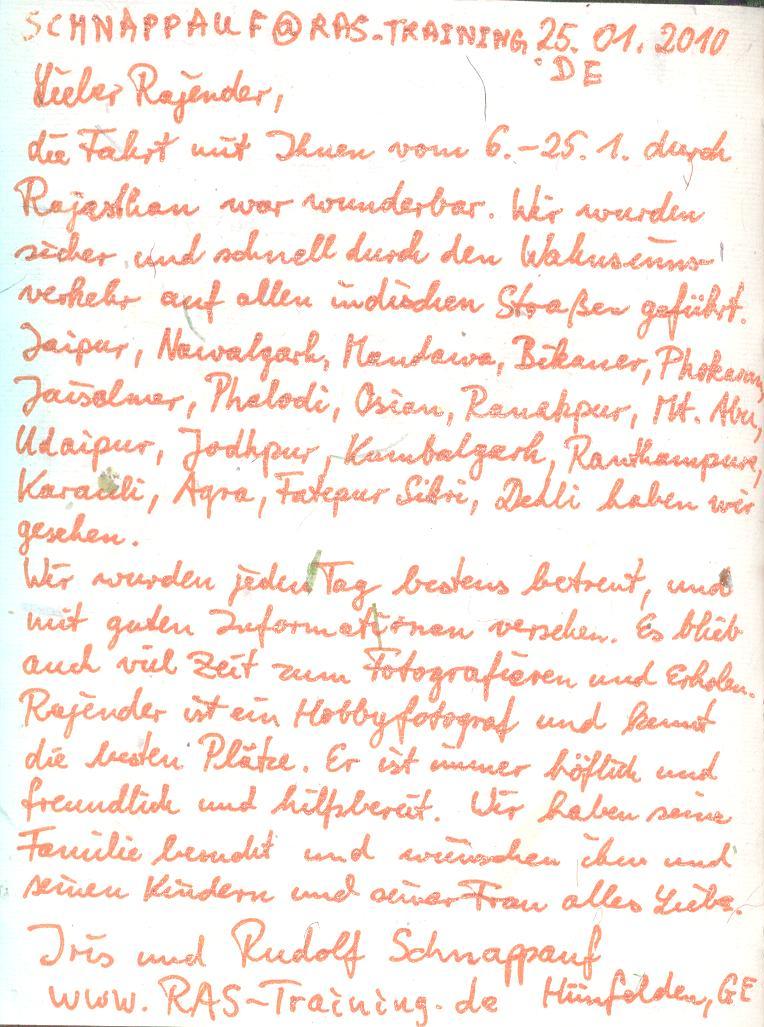 SCHNAPPAUF@RAS-TRAINING 25.01.2010
.DE
Lieber Rajender,
die Fahrt mit Ihnen vom 6.-25.1. durch
Rajasthan war wunderbar. Wir wurden
sicher und schnell durch den Wahnsinns-
verkehr auf allen indischen Straßen geführt.
Jaipur, Nawalgarh, Mandawa, Bikaner, Phokaran,
Jaisalmer, Phalodi, Osian, Ranakpur, Mt. Abu,
Udaipur, Jodhpur, Kumbalgarh, Ranthampure,
Karauli, Agra, Fatepur Sikri, Dehli haben wir
gesehen.
Wir wurden jeden Tag bestens betreut, und
mit guten Informationen versehen. Es blieb
auch viel Zeit zum Fotografieren und Erholen.
Rajender ist ein Hobbyfotograf und kennt
die besten Plätze. Er ist immer höflich und
freundlich und hilfsbereit. Wir haben seine
Familie besucht und wünschen ihm und
seinen Kindern und seiner Frau alles Liebe.
Iris und Rudolf Schnappauf
www.RAS-Training.de Hünfelden, GE